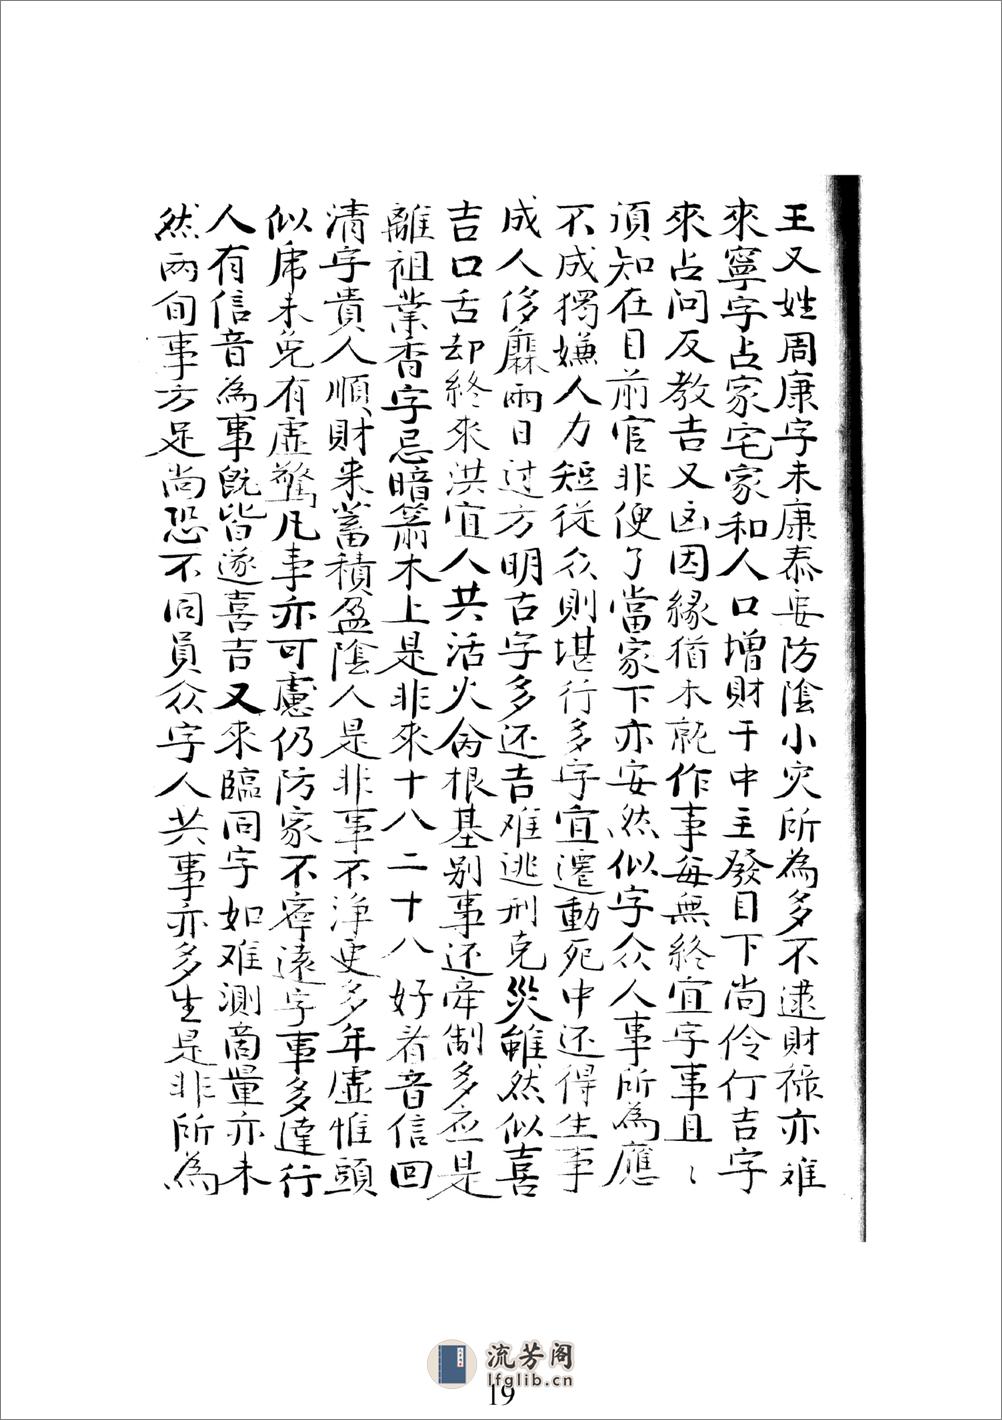 王又姓周康字未康泰安防陰小灾所為多不逮財禄亦难
來寧字占家宅家和人口增財干中主發日下尚伶仃吉字
來占問反教吉又凶因緣猶木就作事每無終宜字事且〻
須知在目前官非便了當家下亦安然似字众人事所為應
不成獨嫌人力短從众則堪行多字宜遷動死中还得生事
成人侈靡兩日过方明古字多还吉难逃刑克災雖然似喜
吉口舌却終來洪宜人共活火命根基别事还牵制多应是
離祖業香字忌暗箭木上是非來十八二十八好看音信回
清字貴人順財来蓄積盈陰人是非事不净更多年虚惟頭
似虎未免有虚驚凡事亦可慮仍防家不寧遠字事多達行
人有信音為事既皆遂喜吉又來臨同字如难測商量亦未
然两旬事方足尚恐不同員众字人共事亦多生是非所為
流芳阁
lfglib.cn
19